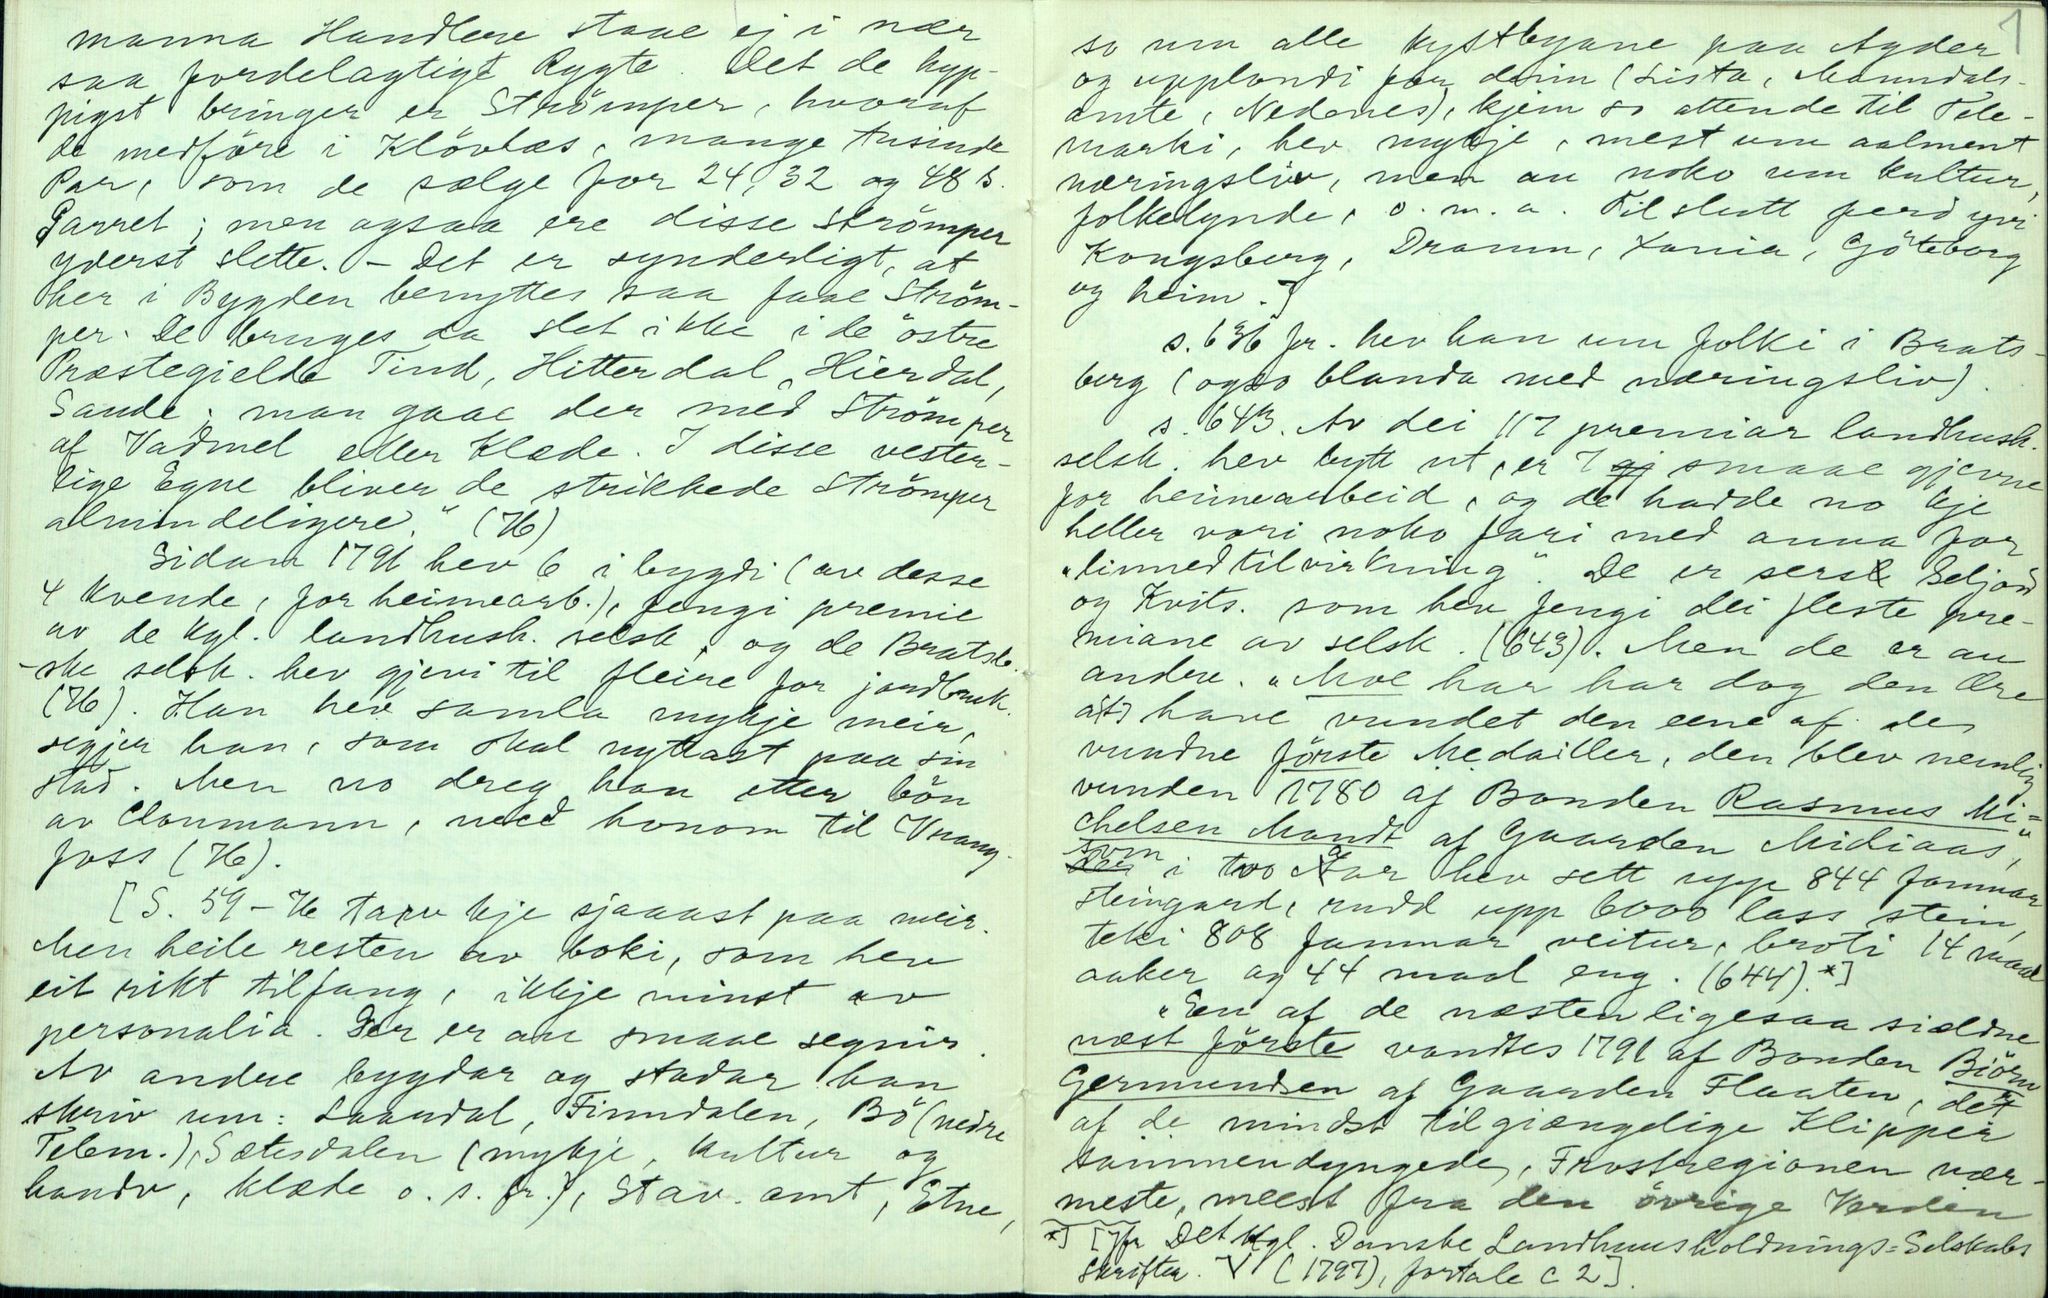 manna Handlere staae ej i nær
saa fordelagtigt Rygte. Det de hyp-
pigst bringer er Strömper, hvoraf
de medföre i Klövlæs, mange tusinde
Par, som de sælge for 24, 32 og 48 s.
Parret; men ogsaa ere disse Strömper
yderst slette. – Det er synderligt, at
her i Bygden benyttes saa faae Ström-
per. De bruges da slet ikke i de östre
Præstegielde Tind, Hitterdal, Hierdal,
Sande; man gaae der med Strömper
af Vadmel eller Klæde. I disse vester-
lige Egne bliver de strikkede Strömper
almindeligere." (76)
Sidan 1791 hev 6 i bygdi (av desse
4 kvende, for heimearb.), fengi premie
av de kgl. landhush. selsk. og de Bratsb.
-ske selsk. hev gjevi til fleire for jordbruk.
(76). Han hev samla mykje meir,
segjer han, som skal nyttast paa sin
stad. Men no dreg han etter bön
av Cloumann, med honom til Vrang-
foss (76).
[S. 59–76 tarv kje sjaaast paa meir.
Men heile resten av boki, som hev
eit rikt tilfang, ikkje minst av
personalia. Der er au smaae segnir.
Av andre bygdar og stadar han
skriv um: Laardal, Finndalen, Bö (nedre
Telem.), Sætesdalen (mykje, kultur og
handv, klæde o. s. fr.), Stav. amt, Etne,
1
so um alle kystbyane paa Agder
og upplandi for deim (Lista, Manndals-
amte, Nedenes), kjem so attende til Tele-
marki, hev mykje, mest um aalment
næringsliv, men au noko um kultur,
folkelynde, o. m. a. Til slutt ferd yvi
Kongsberg, Dramm, Xania, Göteborg
og heim.]
s. 636 fr. hev han um folki i Brats-
berg (ogso blanda med næringsliv).
s. 643. Av dei 117 premiar landhush.
selsk. hev bytt ut, er 7 gj smaae gjevne
for heimearbeid, og de hadde no kje
heller vori noko fari med anna for
„linnedtilvirkning". De er serst Seljord
og Kvits. som hev fengi dei fleste pre-
miane av selsk. (643). Men de er au
andre. „Moe har har dog den Ære
at] have vundet den eene af de
vundne förste Medailler, den blev nemlig
vunden 1780 af Bonden Rasmus Mi=
chelsen Mandt af Gaarden Midiaas,"
som
der i two Aar hev sett upp 844 famnar
steingard, rudd upp 6000 lass stein,
teki 808 famnar veitur, broti 14 maal
aaker og 44 maal eng. (644).*]
„Een af de næsten ligesaa sieldne
næst förste vandtes 1791 af Bonden Biörn
Germundsen af Gaarden Flaaten, det
af de mindst tilgiængelige Klipper
sammendyngede, Frostregionen nær-
meste, meest fra den övrige Verden
*] [Jfr Det kgl. Danske Landhuusholdnings=Selskabs
Skrifter. V (1797), fortale c 2].